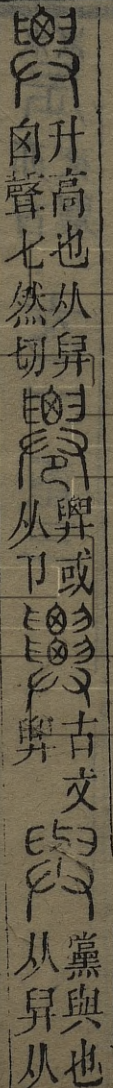 升高也从舁
囟聲七然切
或
从卩
古文
與
黨與也
从舁从